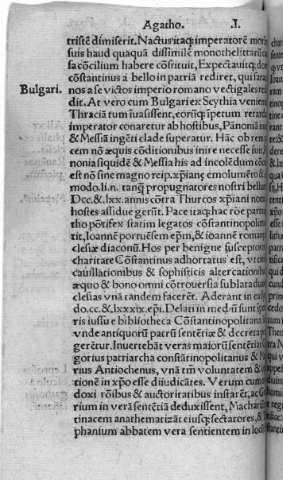 Agatho. I.
tristē dimiserit. Nactus itaq; imperatorē morib
suis haud quaquā dissimilē monothelitarū
sa cōcilium habere cōstituit, Expectauitq; do
cōstantinus a bello in patriā rediret, qui sara
Bulgari.
nos a se victos imperio romano vectigales red
dit. At vero cum Bulgari ex Scythia venient
Thraciā tum īuasissent, eorūq; īperum retarda
imperator conaretur ab hostibus, Pānoniā in
& Messiā īngēti clade superatur. Hāc ob rem
cem nō æquis cōditionibus inire necesse fuit,
nonia siquidē & Messia his ad incolēdum cō
est nō sine magno reip. xpianę emolumēto &
modo. Ii. n. tanq̃ propugnatores nostri bellum
Dcc. & lxx. annis cōtra Thurcos xpiani nomi
hostes assidue gerūt. Pace itaq; hac rōe parta
tho pōtifex statim legatos cōstantinopolim
tit, Ioannē portuēsem epm, & ioannē romanæ
clesiæ diaconū. Hos per benigne susceptos
charitate Cōstātinus adhortatus est, vt om
cauillationibus & sophisticis altercationib
æquo & bono omni cōtrouersia sublara duas
clesias vnā tandem facerēt. Aderant in eo
do. cc. & lxxxix. epi. Delati in mediū sunt
ris iussu e bibliotheca Cōstantinopolitana
vnde antiquorū patrū sentētiæ & decreta
gerētur. Inuertebāt veras maiorū sentētias
gorius patriarcha constātinopolitanus & M
rius Antiochenus, vnā tm̄ voluntatem &
tionē in xpo esse diiudicātes. Verum cum
doxi rōibus & auctoritatibus instarēt, ac
rium in verā sentētiā deduxissent, Machar
tinacem anathematizāt eiusq; sectatores, &
phanium abbatem vera sentientem in loco